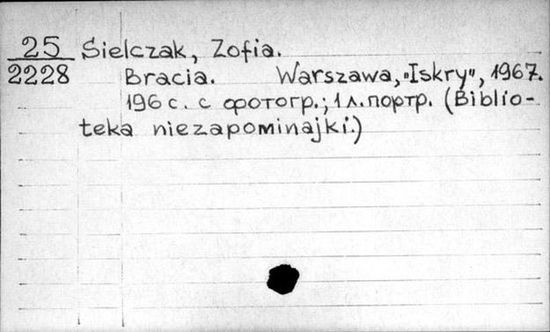 25 Sielczak, Zofia.
2228 Bracia. Warszawa, "Iskry", 1967.
196 с. с фотогр.; 1 л. портр. (Biblio-
teka niezapominajki.)